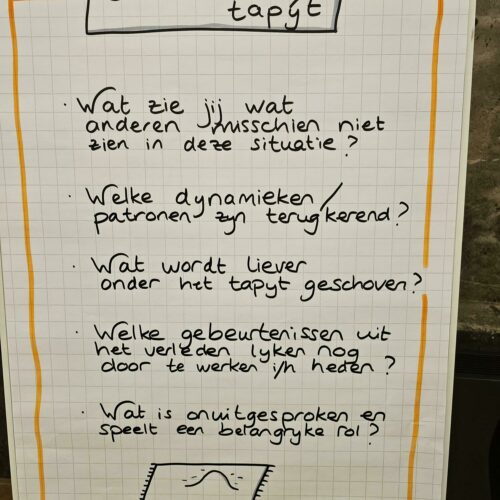 tapÿt
· Wat zie jij wat
anderen misschien niet
zien in deze situatie?
· Welke dynamieken/
patronen zÿn terugkerend?
· Wat wordt liever
onder het tapÿt geschoven?
· Welke gebeurtenissen uit
het verleden lÿken nog
door te werken i/h heden?
· Wat is onuitgesproken en
speelt een belangrÿke rol?